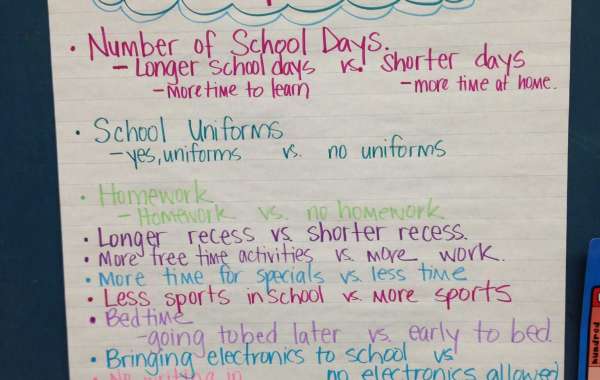 • Number of School Days.
- Longer school days vs. shorter days
- More time to learn - more time at home.
• School Uniforms
- yes, uniforms vs. no uniforms
• Homework
- Homework vs. no homework
• Longer recess vs. shorter recess.
• More free time activities vs. more work.
• More time for specials vs. less time
• Less sports in school vs. more sports
• Bedtime
- going to bed later vs. early to bed.
• Bringing electronics to school vs
no electronics allowed
• No writing in
hundred